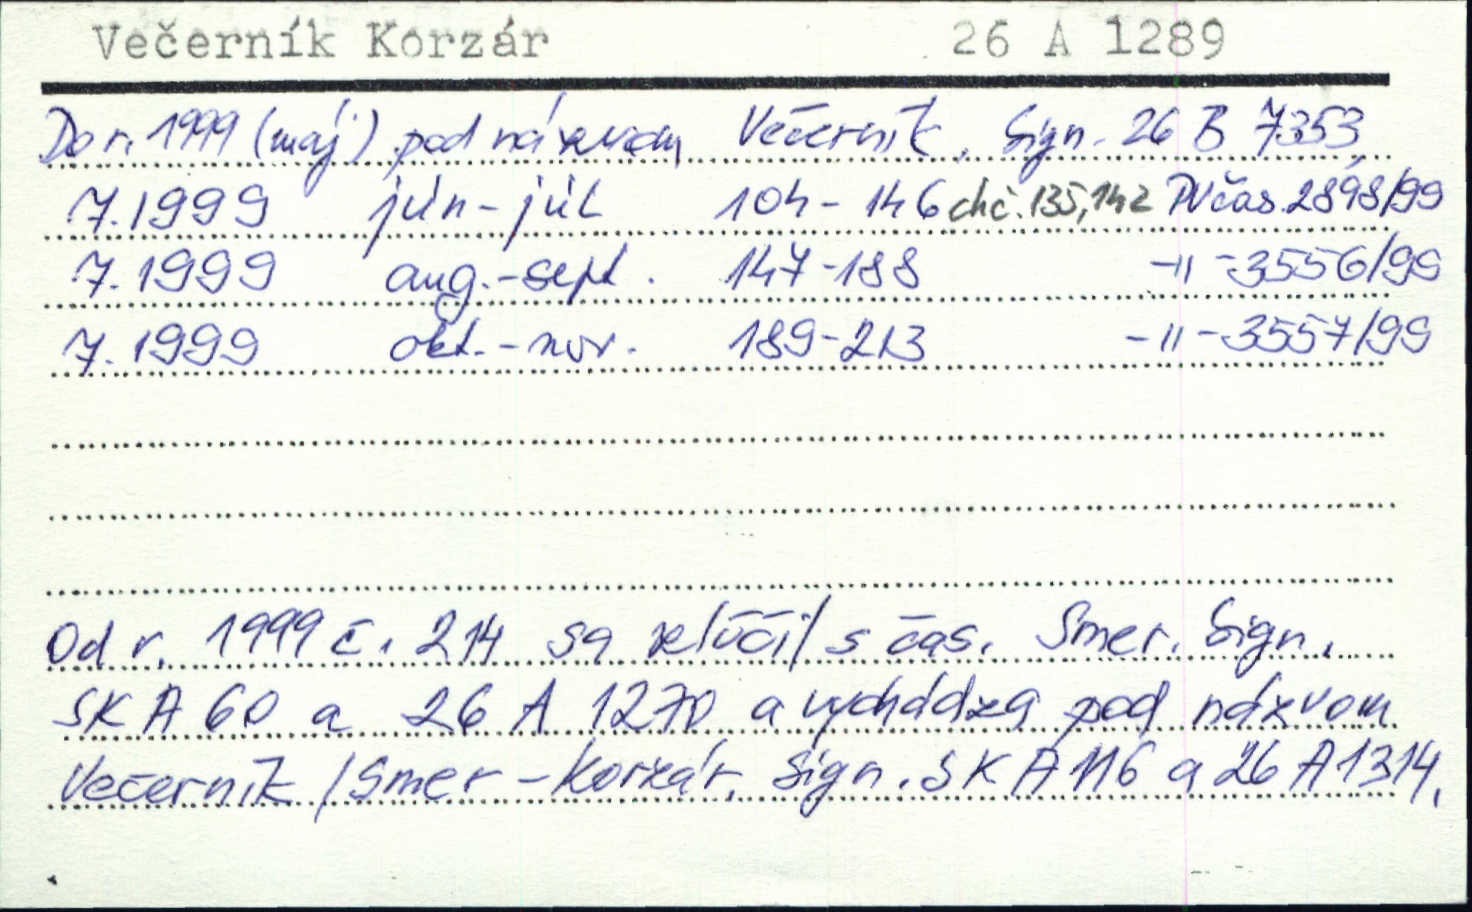 Večerník Korzár 26 A 1289
Do r. 1999 (máj) pod názvom Večerník, Sign. 26 B 7353
7.1999 jún-júl 104-146 chč. 135, 142 PVčas. 2898/99
7.1999 aug.-sept. 147-188 -11-3556/99
7.1999 okt.-nov. 189-213 -11-3557/99
Od r. 1999 č. 214 sa zlúčil s čas. Smer. Sign.
SK A 60 a 26 A 1270 a vychádza pod názvom
Večerník / Smer - Korzár. Sign. SK A 116 a 26 A 1314.